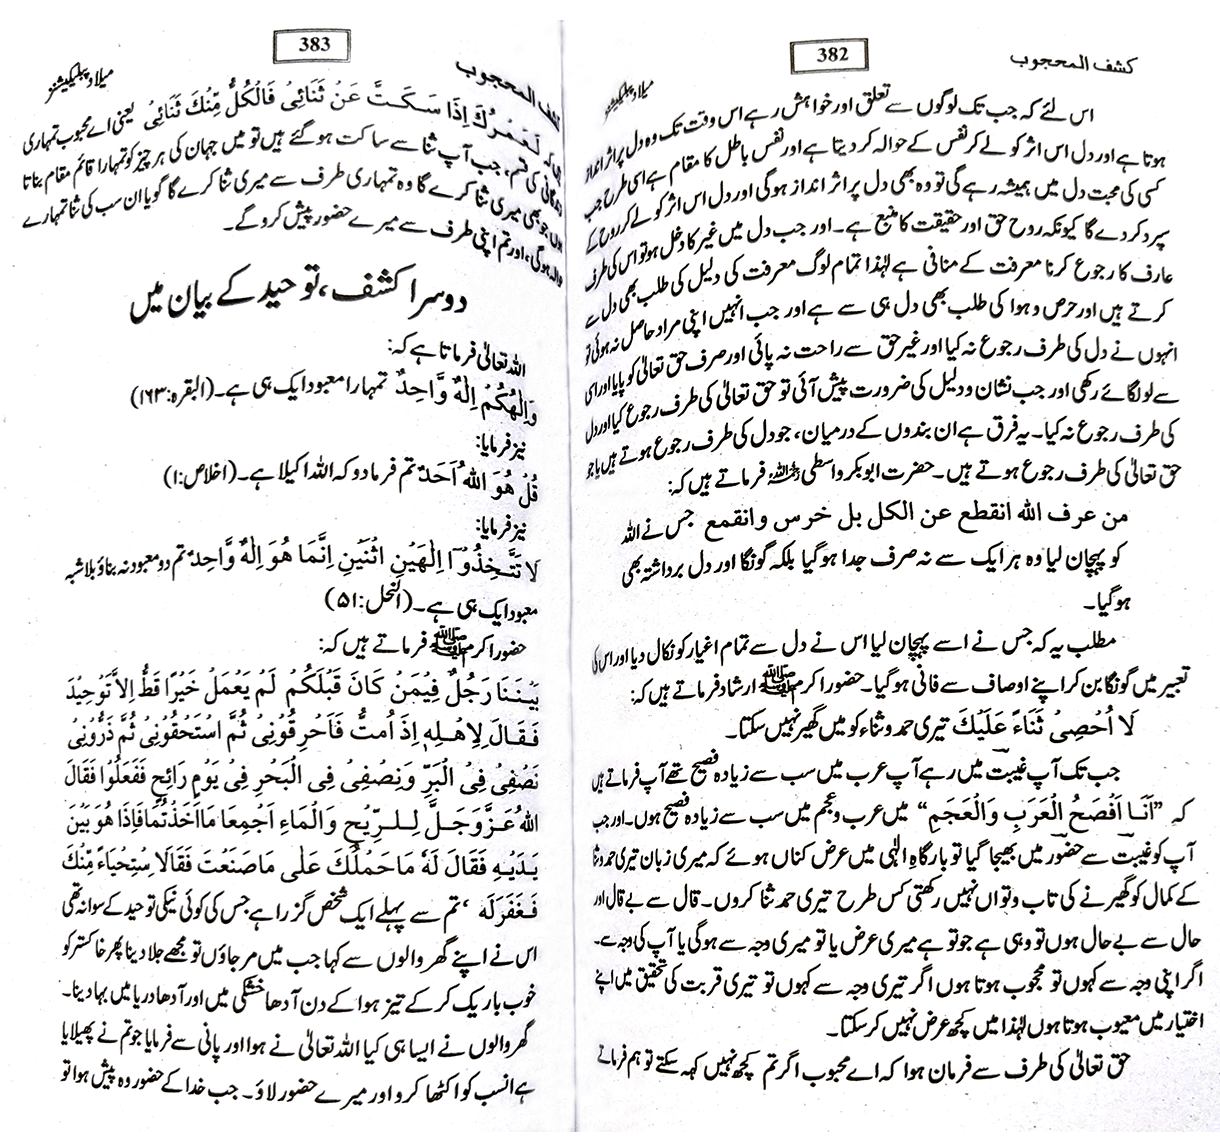 382
کشف المحجوب
میلاد پبلیکیشنز
اس لئے کہ جب تک لوگوں سے تعلق اور خواہش رہے اس وقت تک وہ دل پر اثر انداز
ہوتا ہے اور دل اس اثر کو لے کر نفس کے حوالہ کر دیتا ہے اور نفس باطل کا مقام ہے اسی طرح جب
کسی کی محبت دل میں ہمیشہ رہے گی تو وہ بھی دل پر اثر انداز ہوگی اور دل اس اثر کو لے کر روح کے
سپرد کر دے گا کیونکہ روح حق اور حقیقت کا منبع ہے۔ اور جب دل میں غیر کا دخل ہو تو اس کی طرف
عارف کا رجوع کرنا معرفت کے منافی ہے لہٰذا تمام لوگ معرفت کی دلیل کی طلب بھی دل سے
کرتے ہیں اور حرص و ہوا کی طلب بھی دل ہی سے ہے اور جب انہیں اپنی مراد حاصل نہ ہوئی تو
انہوں نے دل کی طرف رجوع نہ کیا اور غیر حق سے راحت نہ پائی اور صرف حق تعالیٰ کو پایا اور اسی
سے لو لگائے رکھی اور جب نشان و دلیل کی ضرورت پیش آئی تو حق تعالیٰ کی طرف رجوع کیا اور دل
کی طرف رجوع نہ کیا۔ یہ فرق ہے ان بندوں کے درمیان، جو دل کی طرف رجوع ہوتے ہیں یا جو
حق تعالیٰ کی طرف رجوع ہوتے ہیں۔ حضرت ابوبکر واسطی رحمۃ اللہ علیہ فرماتے ہیں کہ:
من عرف الله انقطع عن الكل بل خرس وانقمع جس نے اللہ
کو پہچان لیا وہ ہر ایک سے نہ صرف جدا ہو گیا بلکہ گونگا اور دل برداشتہ بھی
ہو گیا۔
مطلب یہ کہ جس نے اسے پہچان لیا اس نے دل سے تمام اغیار کو نکال دیا اور اس کی
تعبیر میں گونگا بن کر اپنے اوصاف سے فانی ہو گیا۔ حضور اکرم ﷺ ارشاد فرماتے ہیں کہ:
لَا اُحْصِیْ ثَنَاءً عَلَیْكَ تیری حمد و ثناء کو میں گھیر نہیں سکتا۔
جب تک آپ غیبت میں رہے آپ عرب میں سب سے زیادہ فصیح تھے آپ فرماتے ہیں
کہ ”اَنَا اَفْصَحُ الْعَرَبِ وَالْعَجَمِ“ میں عرب و عجم میں سب سے زیادہ فصیح ہوں۔ اور جب
آپ کو غیبت سے حضور میں بھیجا گیا تو بارگاہ الٰہی میں عرض کناں ہوئے کہ میری زبان تیری حمد و ثنا
کے کمال کو گھیرنے کی تاب و تواں نہیں رکھتی کس طرح تیری حمد ثنا کروں۔ قال سے بے قال اور
حال سے بے حال ہوں تو وہی ہے جو تو ہے میری عرض یا تو میری وجہ سے ہوگی یا آپ کی وجہ سے۔
اگر اپنی وجہ سے کہوں تو محجوب ہوتا ہوں اگر تیری وجہ سے کہوں تو تیری قربت کی تحقیق میں اپنے
اختیار میں معیوب ہوتا ہوں لہٰذا میں کچھ عرض نہیں کر سکتا۔
حق تعالیٰ کی طرف سے فرمان ہوا کہ اے محبوب اگر تم کچھ نہیں کہہ سکتے تو ہم فرماتے
383
کشف المحجوب
میلاد پبلیکیشنز
لَعَمْرُكَ اِذَا سَكَتَّ عَنْ ثَنَائِیْ فَالْكُلُّ مِنْكَ ثَنَائِیْ یعنی اے محبوب تمہاری
زندگانی کی قسم، جب آپ ثنا سے ساکت ہو گئے ہیں تو میں جہان کی ہر چیز کو تمہارا قائم مقام بناتا
ہوں جو بھی میری ثنا کرے گا وہ تمہاری طرف سے میری ثنا کرے گا گویا ان سب کی ثنا تمہارے
حوالہ ہوگی، اور تم اپنی طرف سے میرے حضور پیش کرو گے۔
دوسرا کشف، توحید کے بیان میں
اللہ تعالیٰ فرماتا ہے کہ:
وَاِلٰهُكُمْ اِلٰهٌ وَّاحِدٌ تمہارا معبود ایک ہی ہے۔ (البقرہ: ۱۶۳)
نیز فرمایا:
قُلْ هُوَ اللّٰهُ اَحَدٌ تم فرما دو کہ اللہ اکیلا ہے۔ (اخلاص: ۱)
نیز فرمایا:
لَا تَتَّخِذُوْٓا اِلٰهَیْنِ اثْنَیْنِ اِنَّمَا هُوَ اِلٰهٌ وَّاحِدٌ تم دو معبود نہ بناؤ بلاشبہ
معبود ایک ہی ہے۔ (النحل: ۵۱)
حضور اکرم ﷺ فرماتے ہیں کہ:
بَیْنَنَا رَجُلٌ فِیْمَنْ كَانَ قَبْلَكُمْ لَمْ یَعْمَلْ خَیْرًا قَطُّ اِلَّا تَوْحِیْدَ
فَقَالَ لِاَهْلِهٖ اِذَ اُمتُّ فَاَحْرِ قُوْنِیْ ثُمَّ اسْتَحْقُوْنِیْ ثُمَّ ذَرُّوْنِیْ
نَصْفِیْ فِیْ الْبَرِّ وَنِصْفِیْ فِی الْبَحْرِ فِیْ یَوْمٍ رَائِحٍ فَفَعَلُوْا فَقَالَ
اللّٰهُ عَزَّوَجَلَّ لِلرِّیْحِ وَالْمَاءِ اَجْمِعَا مَا اَخَذْتُمَا فَاِذَا هُوَ بَیْنَ
یَدَیْهِ فَقَالَ لَهٗ مَا حَمَلَكَ عَلٰی مَا صَنَعْتَ فَقَالَ اسْتِحْیَاءً مِّنْكَ
فَغَفَرَلَه ‘ تم سے پہلے ایک شخص گزرا ہے جس کی کوئی نیکی توحید کے سوا نہ تھی
اس نے اپنے گھر والوں سے کہا جب میں مر جاؤں تو مجھے جلا دینا پھر خاکستر کو
خوب باریک کر کے تیز ہوا کے دن آدھا خشکی میں اور آدھا دریا میں بہا دینا۔
گھر والوں نے ایسا ہی کیا اللہ تعالیٰ نے ہوا اور پانی سے فرمایا جو تم نے پھیلایا
ہے انسب کو اکٹھا کرو اور میرے حضور لاؤ۔ جب خدا کے حضور وہ پیش ہوا تو